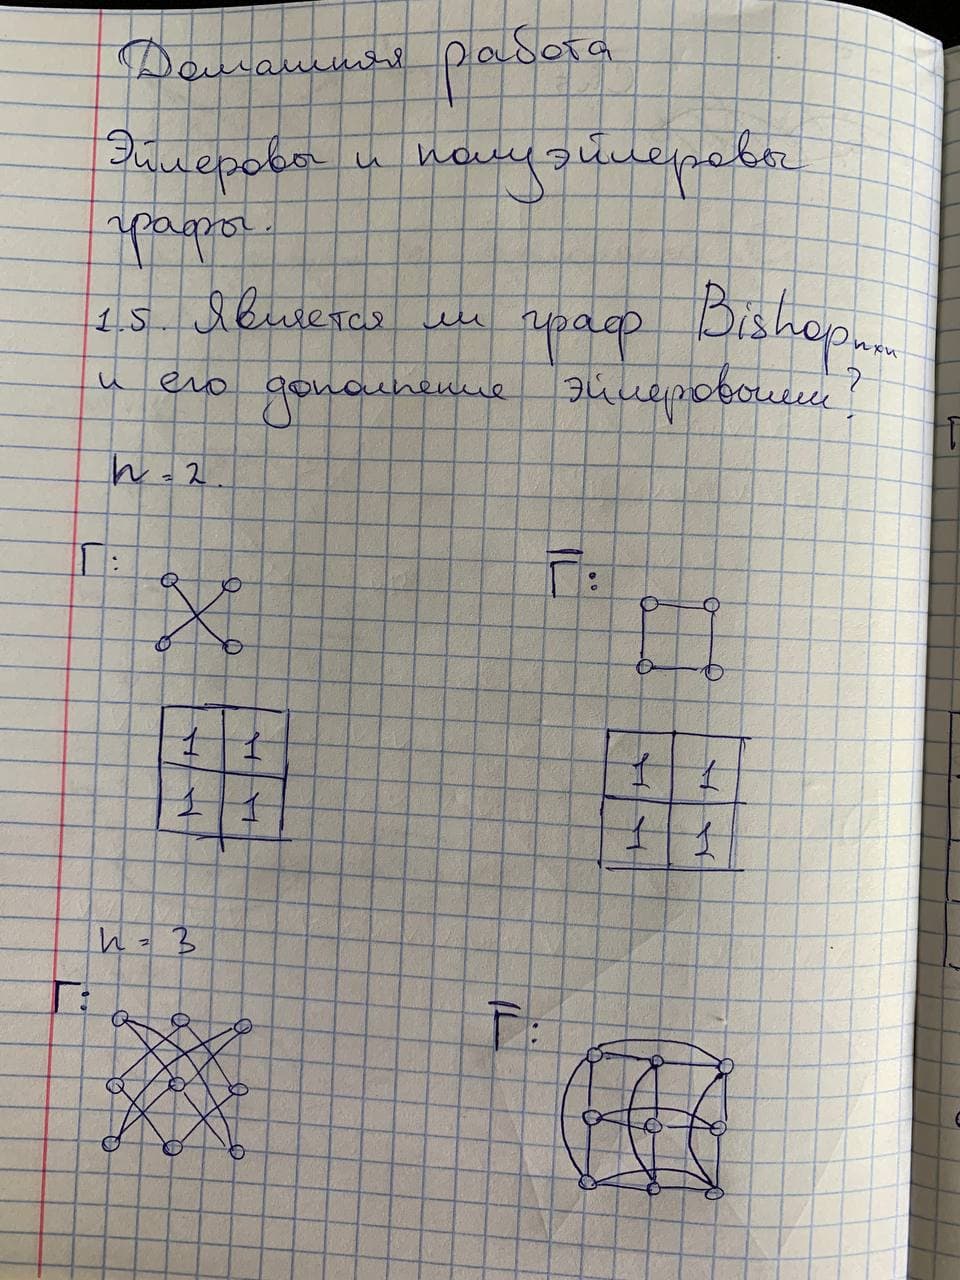 Домашняя работа
Эйлеровы и полуэйлеровы
графы.
1.5. Является ли граф Bishopₙₓₙ
и его дополнение эйлеровыми?
n = 2.
Γ: Γ̅:
1 1 1 1
1 1 1 1
n = 3
Γ: Γ̅: